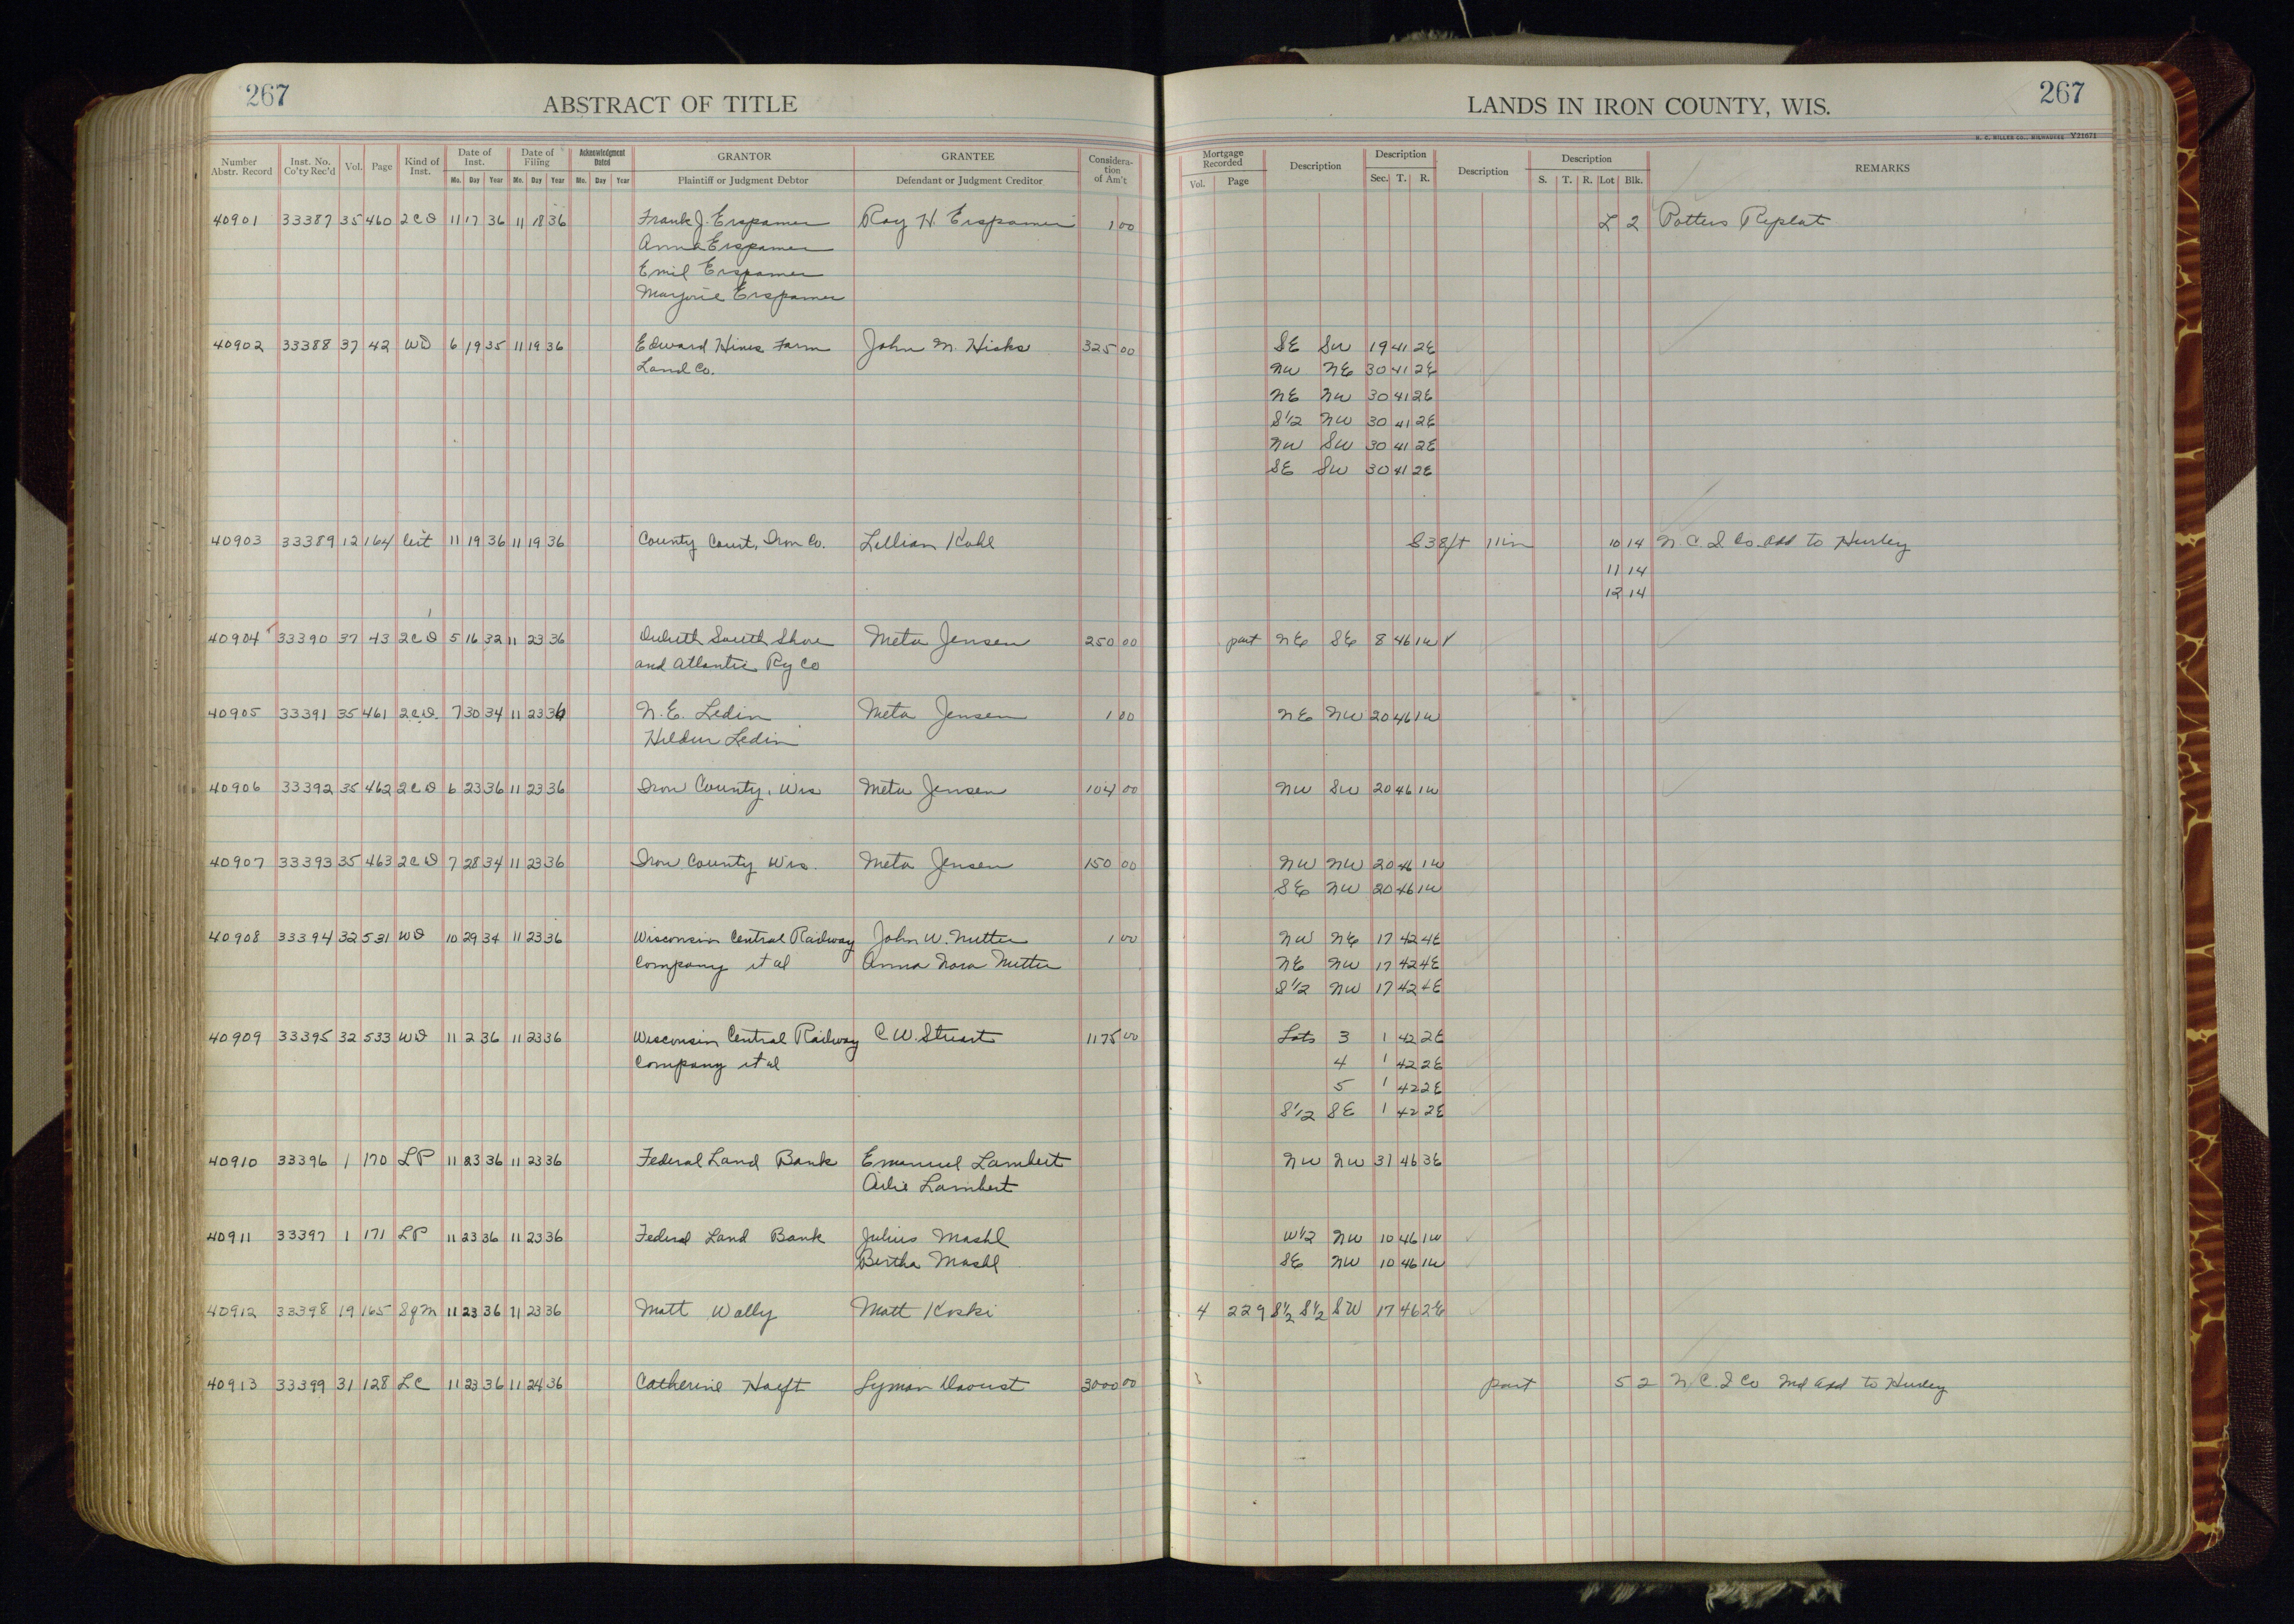 267 ABSTRACT OF TITLE LANDS IN IRON COUNTY, WIS. 267
H. C. MILLER CO., MILWAUKEE Y21671
Number Abstr. Record Inst. No. Co'ty Rec'd Vol. Page Kind of Inst. Date of Inst. Mo. Day Year Date of Filing Mo. Day Year Acknowledgment Dated Mo. Day Year GRANTOR Plaintiff or Judgment Debtor GRANTEE Defendant or Judgment Creditor Considera-tion of Am't Mortgage Recorded Vol. Page Description Description Sec. T. R. Description Description S. T. R. Lot Blk. REMARKS
40901 33387 35 460 2CD 11 17 36 11 18 36 Frank J. Erspamer Roy H. Erspamer 1 00 L 2 Potters Replat
Anna Erspamer
Emil Erspamer
Marjorie Erspamer
40902 33388 37 42 WD 6 19 35 11 19 36 Edward Hines Farm John M. Hicks 325 00 SE SW 19 41 2E
Land Co. NW NE 30 41 2E
NE NW 30 41 2E
S1/2 NW 30 41 2E
NW SW 30 41 2E
SE SW 30 41 2E
40903 33389 12 164 Cert 11 19 36 11 19 36 County Court, Iron Co. Lillian Kohl S 38 ft 11 in 10 14 N. C. I Co. Add to Hurley
11 14
12 14
40904 33390 37 43 2CD 5 16 32 11 23 36 Duluth South Shore Meta Jensen 250 00 part NE SE 8 46 1W
and Atlantic Ry Co
40905 33391 35 461 2CD 7 30 34 11 23 36 N. E. Ledin Meta Jensen 1 00 NE NW 20 46 1W
Hildur Ledin
40906 33392 35 462 2CD 6 23 36 11 23 36 Iron County, Wis Meta Jensen 104 00 NW SW 20 46 1W
40907 33393 35 463 2CD 7 28 34 11 23 36 Iron County Wis. Meta Jensen 150 00 NW NW 20 46 1W
SE NW 20 46 1W
40908 33394 32 531 WD 10 29 34 11 23 36 Wisconsin Central Railway John W. Nutter 1 00 NW NE 17 42 4E
Company et al Anna Nora Nutter NE NW 17 42 4E
S1/2 NW 17 42 4E
40909 33395 32 533 WD 11 2 36 11 23 36 Wisconsin Central Railway C W. Stuart 1175 00 Lots 3 1 42 2E
Company et al 4 1 42 2E
5 1 42 2E
S1/2 SE 1 42 2E
40910 33396 1 170 LP 11 23 36 11 23 36 Federal Land Bank Emanuel Lambert NW NW 31 46 3E
Lambert
40911 33397 1 171 LP 11 23 36 11 23 36 Federal Land Bank Julius Mashl W1/2 NW 10 46 1W
Bertha Mashl SE NW 10 46 1W
40912 33398 19 165 SgM 11 23 36 11 23 36 Matt Wally Matt Koski 4 229 S1/2 S1/2 SW 17 46 2E
40913 33399 31 128 LC 11 23 36 11 24 36 Catherine Haeft Lyman Daoust 3000 00 part 5 2 N. C. I Co 2nd Add to Hurley